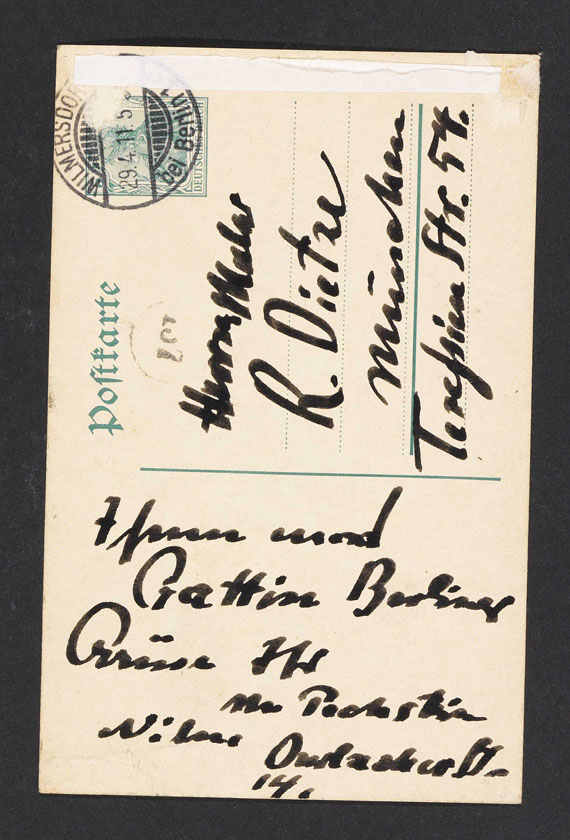 WILMERSDORF
bei Berlin
29.4.11.5
DEUTSCHES
Postkarte
Herrn Maler
R. Dietze
München
Teresien Str. 54.
Ihnen und
Gattin Berliner
Grüße Ihr
M Pechstein
Wilm Durlacher St.
14.